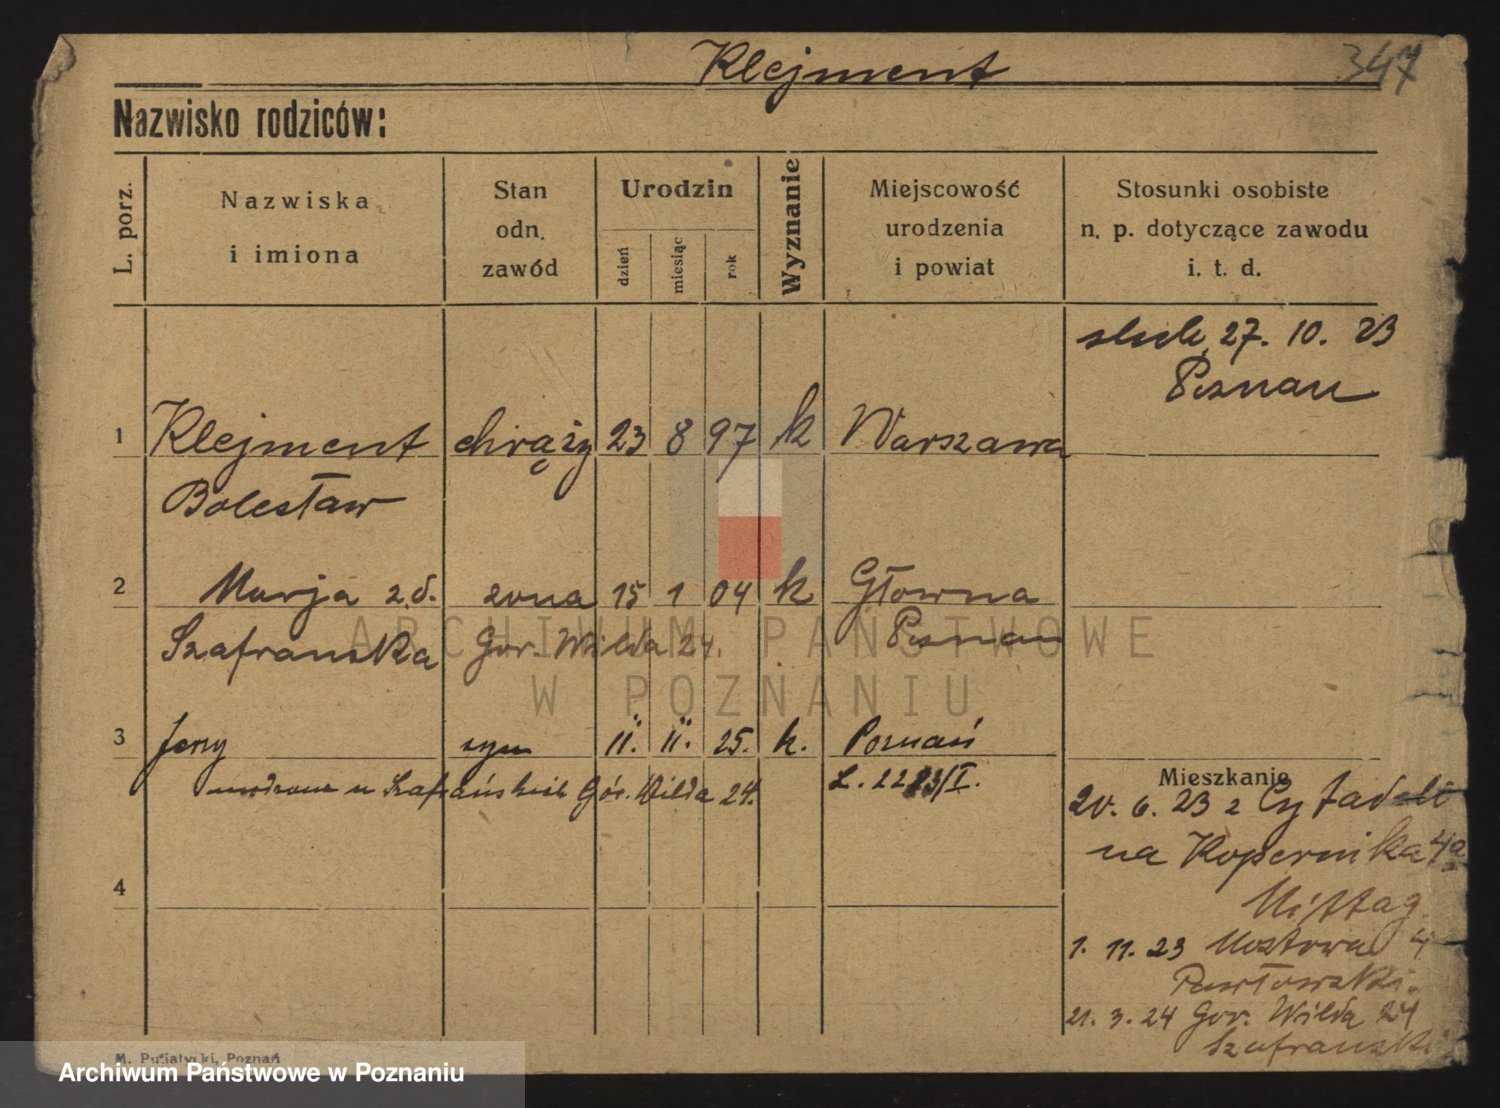 Klejment
347
Nazwisko rodziców:
L. porz.
Nazwiska
i imiona
Stan
odn.
zawód
Urodzin
dzień
miesiąc
rok
Wyznanie
Miejscowość
urodzenia
i powiat
Stosunki osobiste
n. p. dotyczące zawodu
i. t. d.
27. 10. 23
Poznan
1 Klejment chrąży 23 8 97 k Warszawa
Bolesław
2 Marja z d. zona 15 1 04 k Głowna
Szafranska Gor. Wilda 24. Poznan
3 Jerzy syn 11. 11. 25. k. Poznań
u Szafrańskich Gór. Wilda 24. L. 2283/I.
Mieszkanie
20. 6. 23 z Cytadeli
na Kopernika 4a
Mittag
4
1. 11. 23 Mostowa 4
Pawłowski.
21. 3. 24 Gor. Wilda 24
Szafranski
M. Putiatycki, Poznań
ARCHIWUM PAŃSTWOWE
W POZNANIU
Archiwum Państwowe w Poznaniu